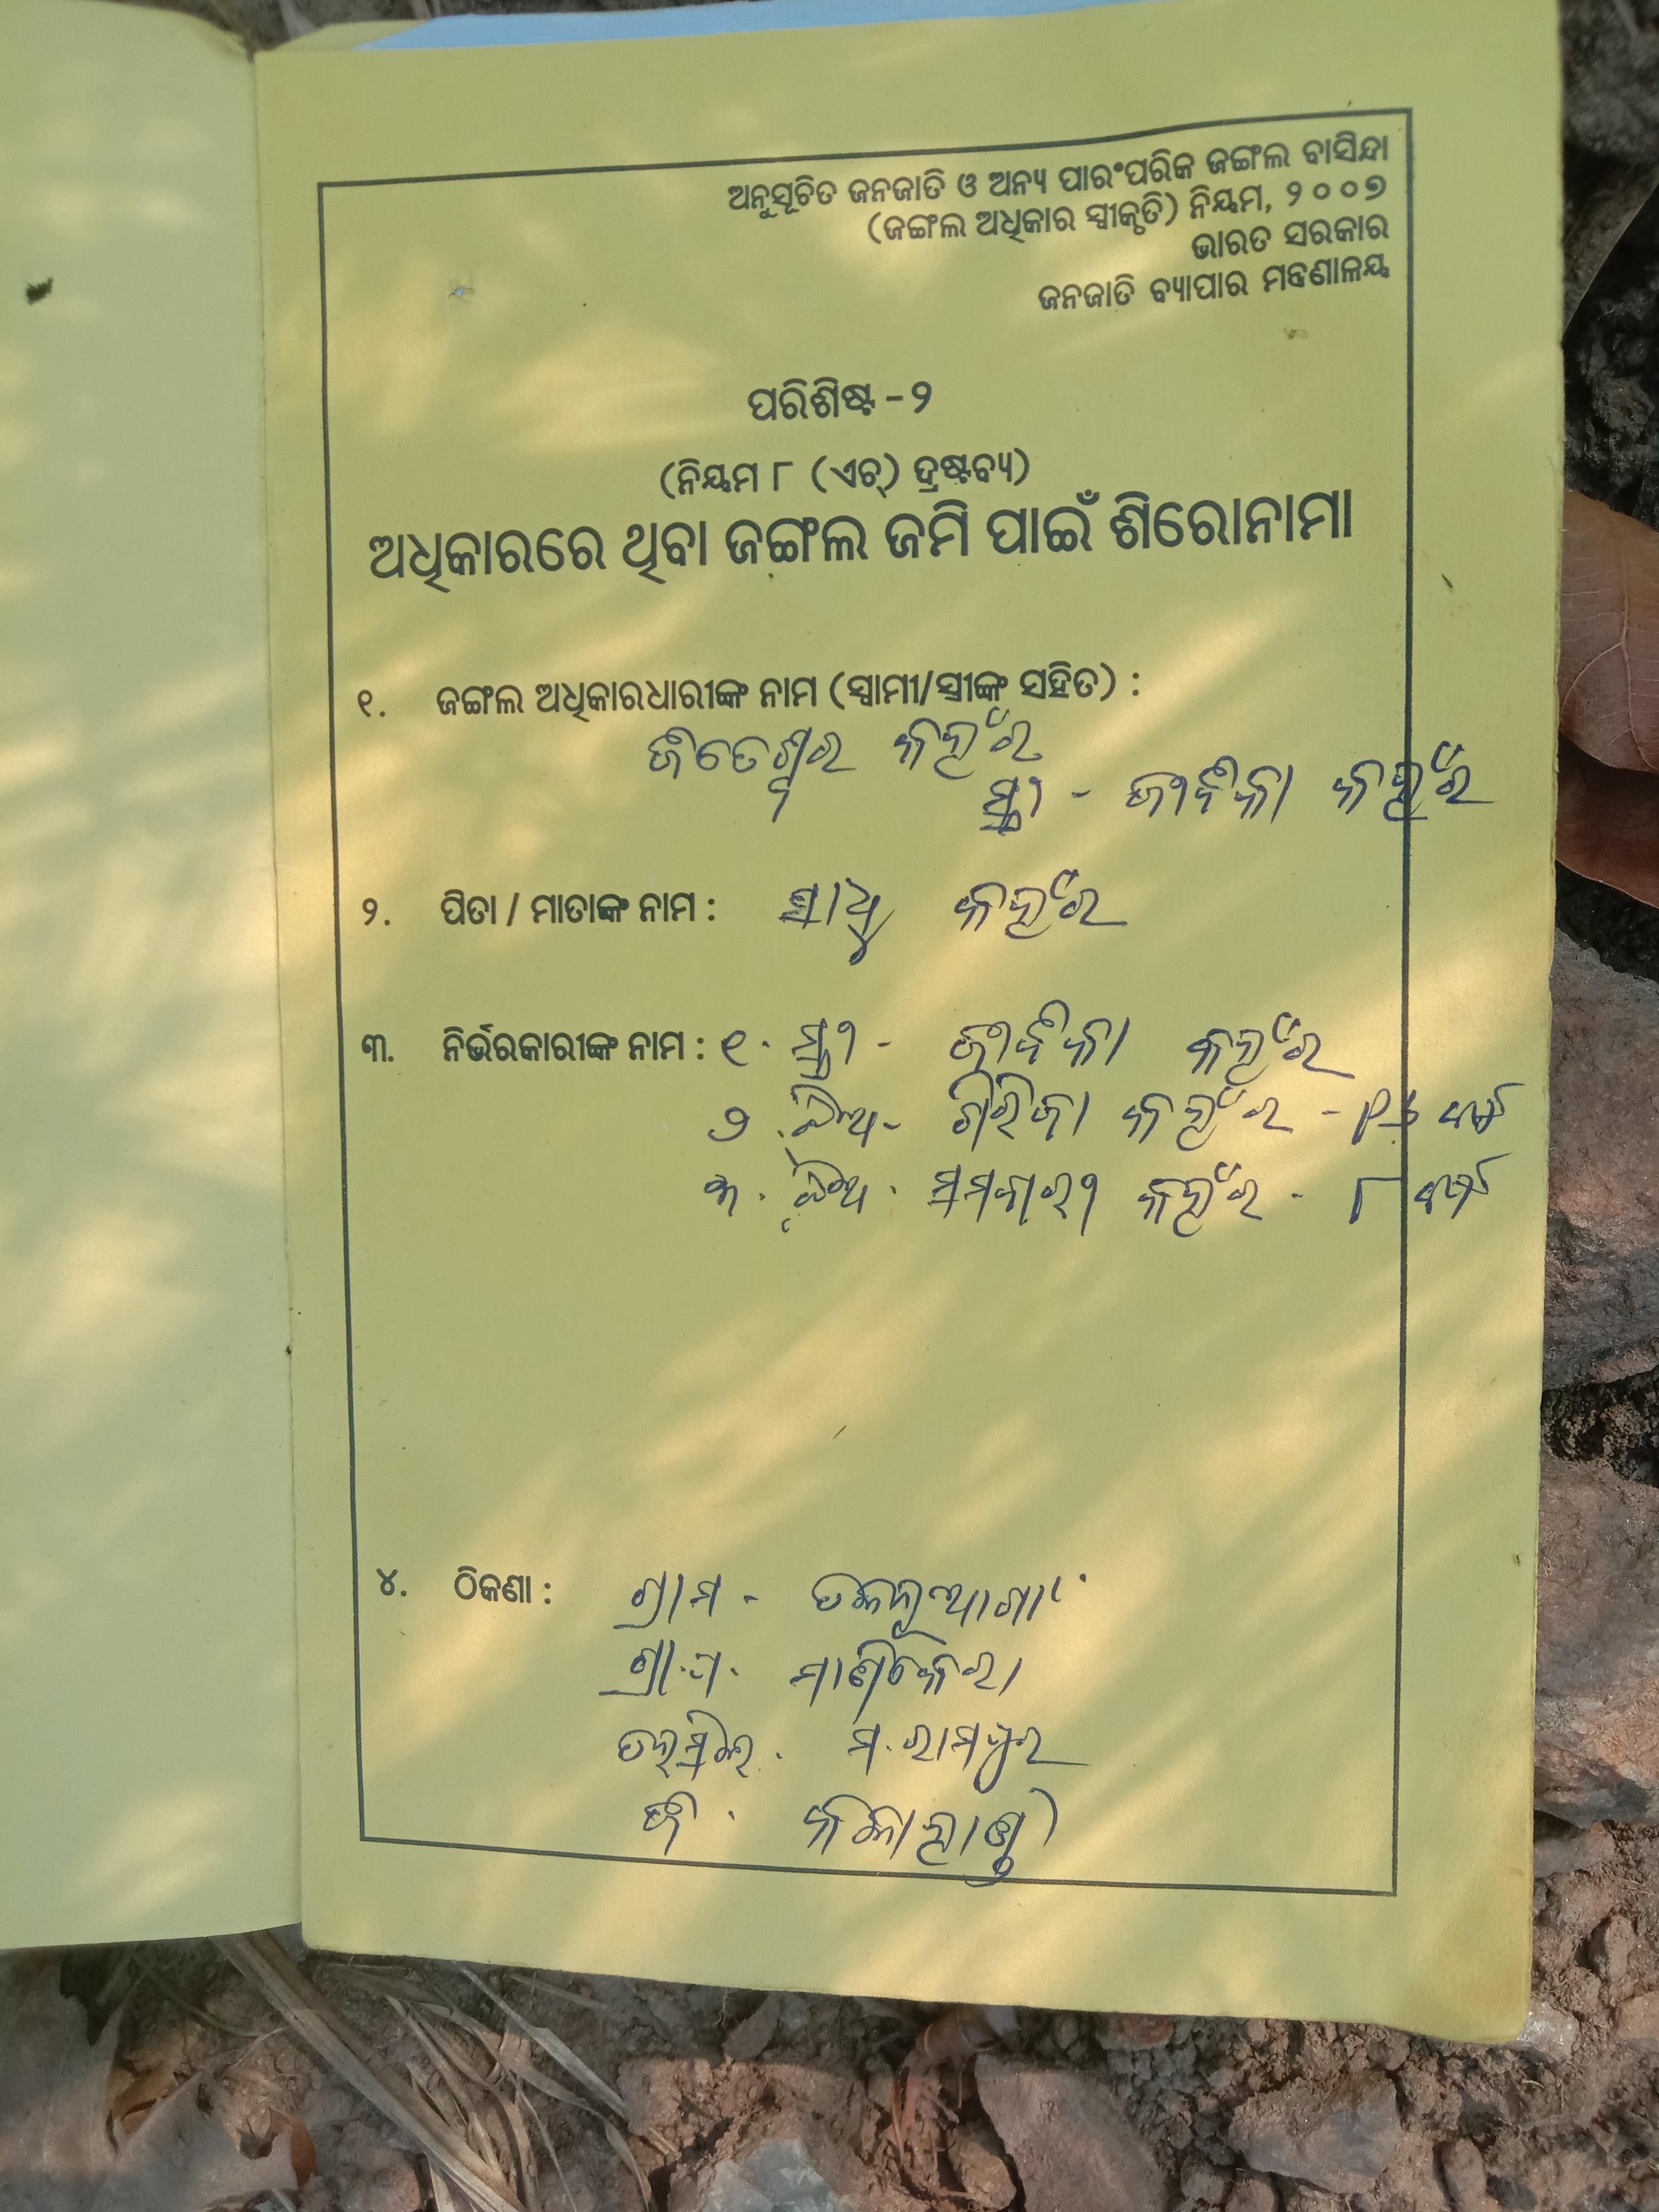 ଅନୁସୂଚିତ ଜନଜାତି ଓ ଅନ୍ୟ ପାରଂପରିକ ଜଙ୍ଗଲ ବାସିନ୍ଦା
(ଜଙ୍ଗଲ ଅଧିକାର ସ୍ୱୀକୃତି) ନିୟମ, ୨୦୦୭
ଭାରତ ସରକାର
ଜନଜାତି ବ୍ୟାପାର ମନ୍ତ୍ରଣାଳୟ
ପରିଶିଷ୍ଟ - ୨
(ନିୟମ ୮ (ଏଚ୍) ଦ୍ରଷ୍ଟବ୍ୟ)
ଅଧିକାରରେ ଥିବା ଜଙ୍ଗଲ ଜମି ପାଇଁ ଶିରୋନାମା
୧. ଜଙ୍ଗଲ ଅଧିକାରଧାରୀଙ୍କ ନାମ (ସ୍ୱାମୀ/ସ୍ତ୍ରୀଙ୍କୁ ସହିତ) :
ଜିତେଶ୍ୱର କହଁର
ସ୍ତ୍ରୀ - କହଁର
୨. ପିତା / ମାତାଙ୍କ ନାମ : ସାଧୁ କହଁର
୩. ନିର୍ଭରକାରୀଙ୍କ ନାମ : ୧. ସ୍ତ୍ରୀ - କହଁର
୨. ଝିଅ - ଗିରିଜା କହଁର - ବର୍ଷ
୩. ଝିଅ - କହଁର - ୮ ବର୍ଷ
୪. ଠିକଣା : ଗ୍ରାମ -
ଗ୍ରା.ପ. ମାଣିକେରା
ତହସିଲ. ମ. ରାମପୁର
ଜି. କଳାହାଣ୍ଡି